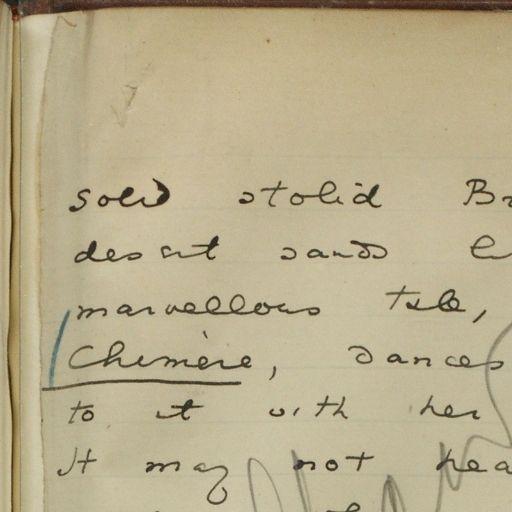 solid stolid
desert sands
marvellous tale,
Chimère, dances
to it with her
It may not